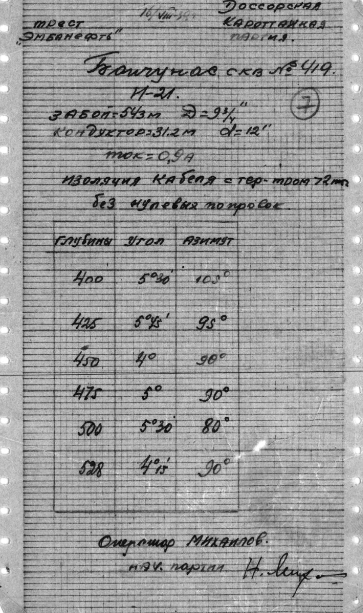 трест
"Эмбанефть"
Доссорская
Кароттажная
партия.
Байчунас скв № 419.
И-21.
7
Забой = 543м D = 9 3/4"
Кондуктор = 31.2м d = 12"
ток = 0,9А
Изоляция кабеля с тер-тром
без нулевых попровок.
Глубины Угол Азимут
400 5°30' 105°
425 5°45' 95°
450 4° 90°
475 5° 90°
500 5°30' 80°
528 4°15' 90°
Оператор Михаилов.
нач. партии